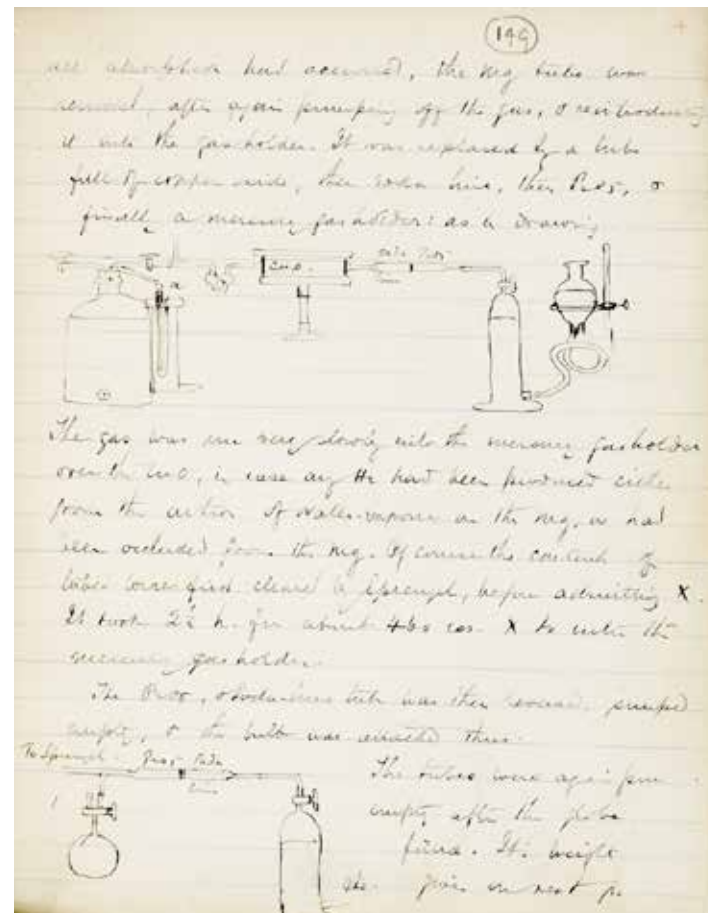 149
all absorption had occurred, the Mg tube was
removed, after again pumping off the gas, & reintroducing
it into the gasholder. It was replaced by a tube
full of copper oxide, then soda lime, then P2O5, &
finally a mercury gasholder: as in drawing
a CuO. soda lime P2O5
The gas was run very slowly into the mercury gasholder
over the CuO, in case any H2 had been produced either
from the action of water-vapour on the Mg, or had
been occluded from the Mg. Of course the contents of
tubes were first cleared by Sprengel, before admitting X.
It took 2½ h. for about 460 ccs. X to enter the
mercury gasholder.
The P2O5, & soda-lime tube was then reversed, pumped
empty, & the bulb was attached thus.
To Sprengel. P2O5 Soda lime
The tubes were again
empty after the globe
filled. Its weight
given on next p.